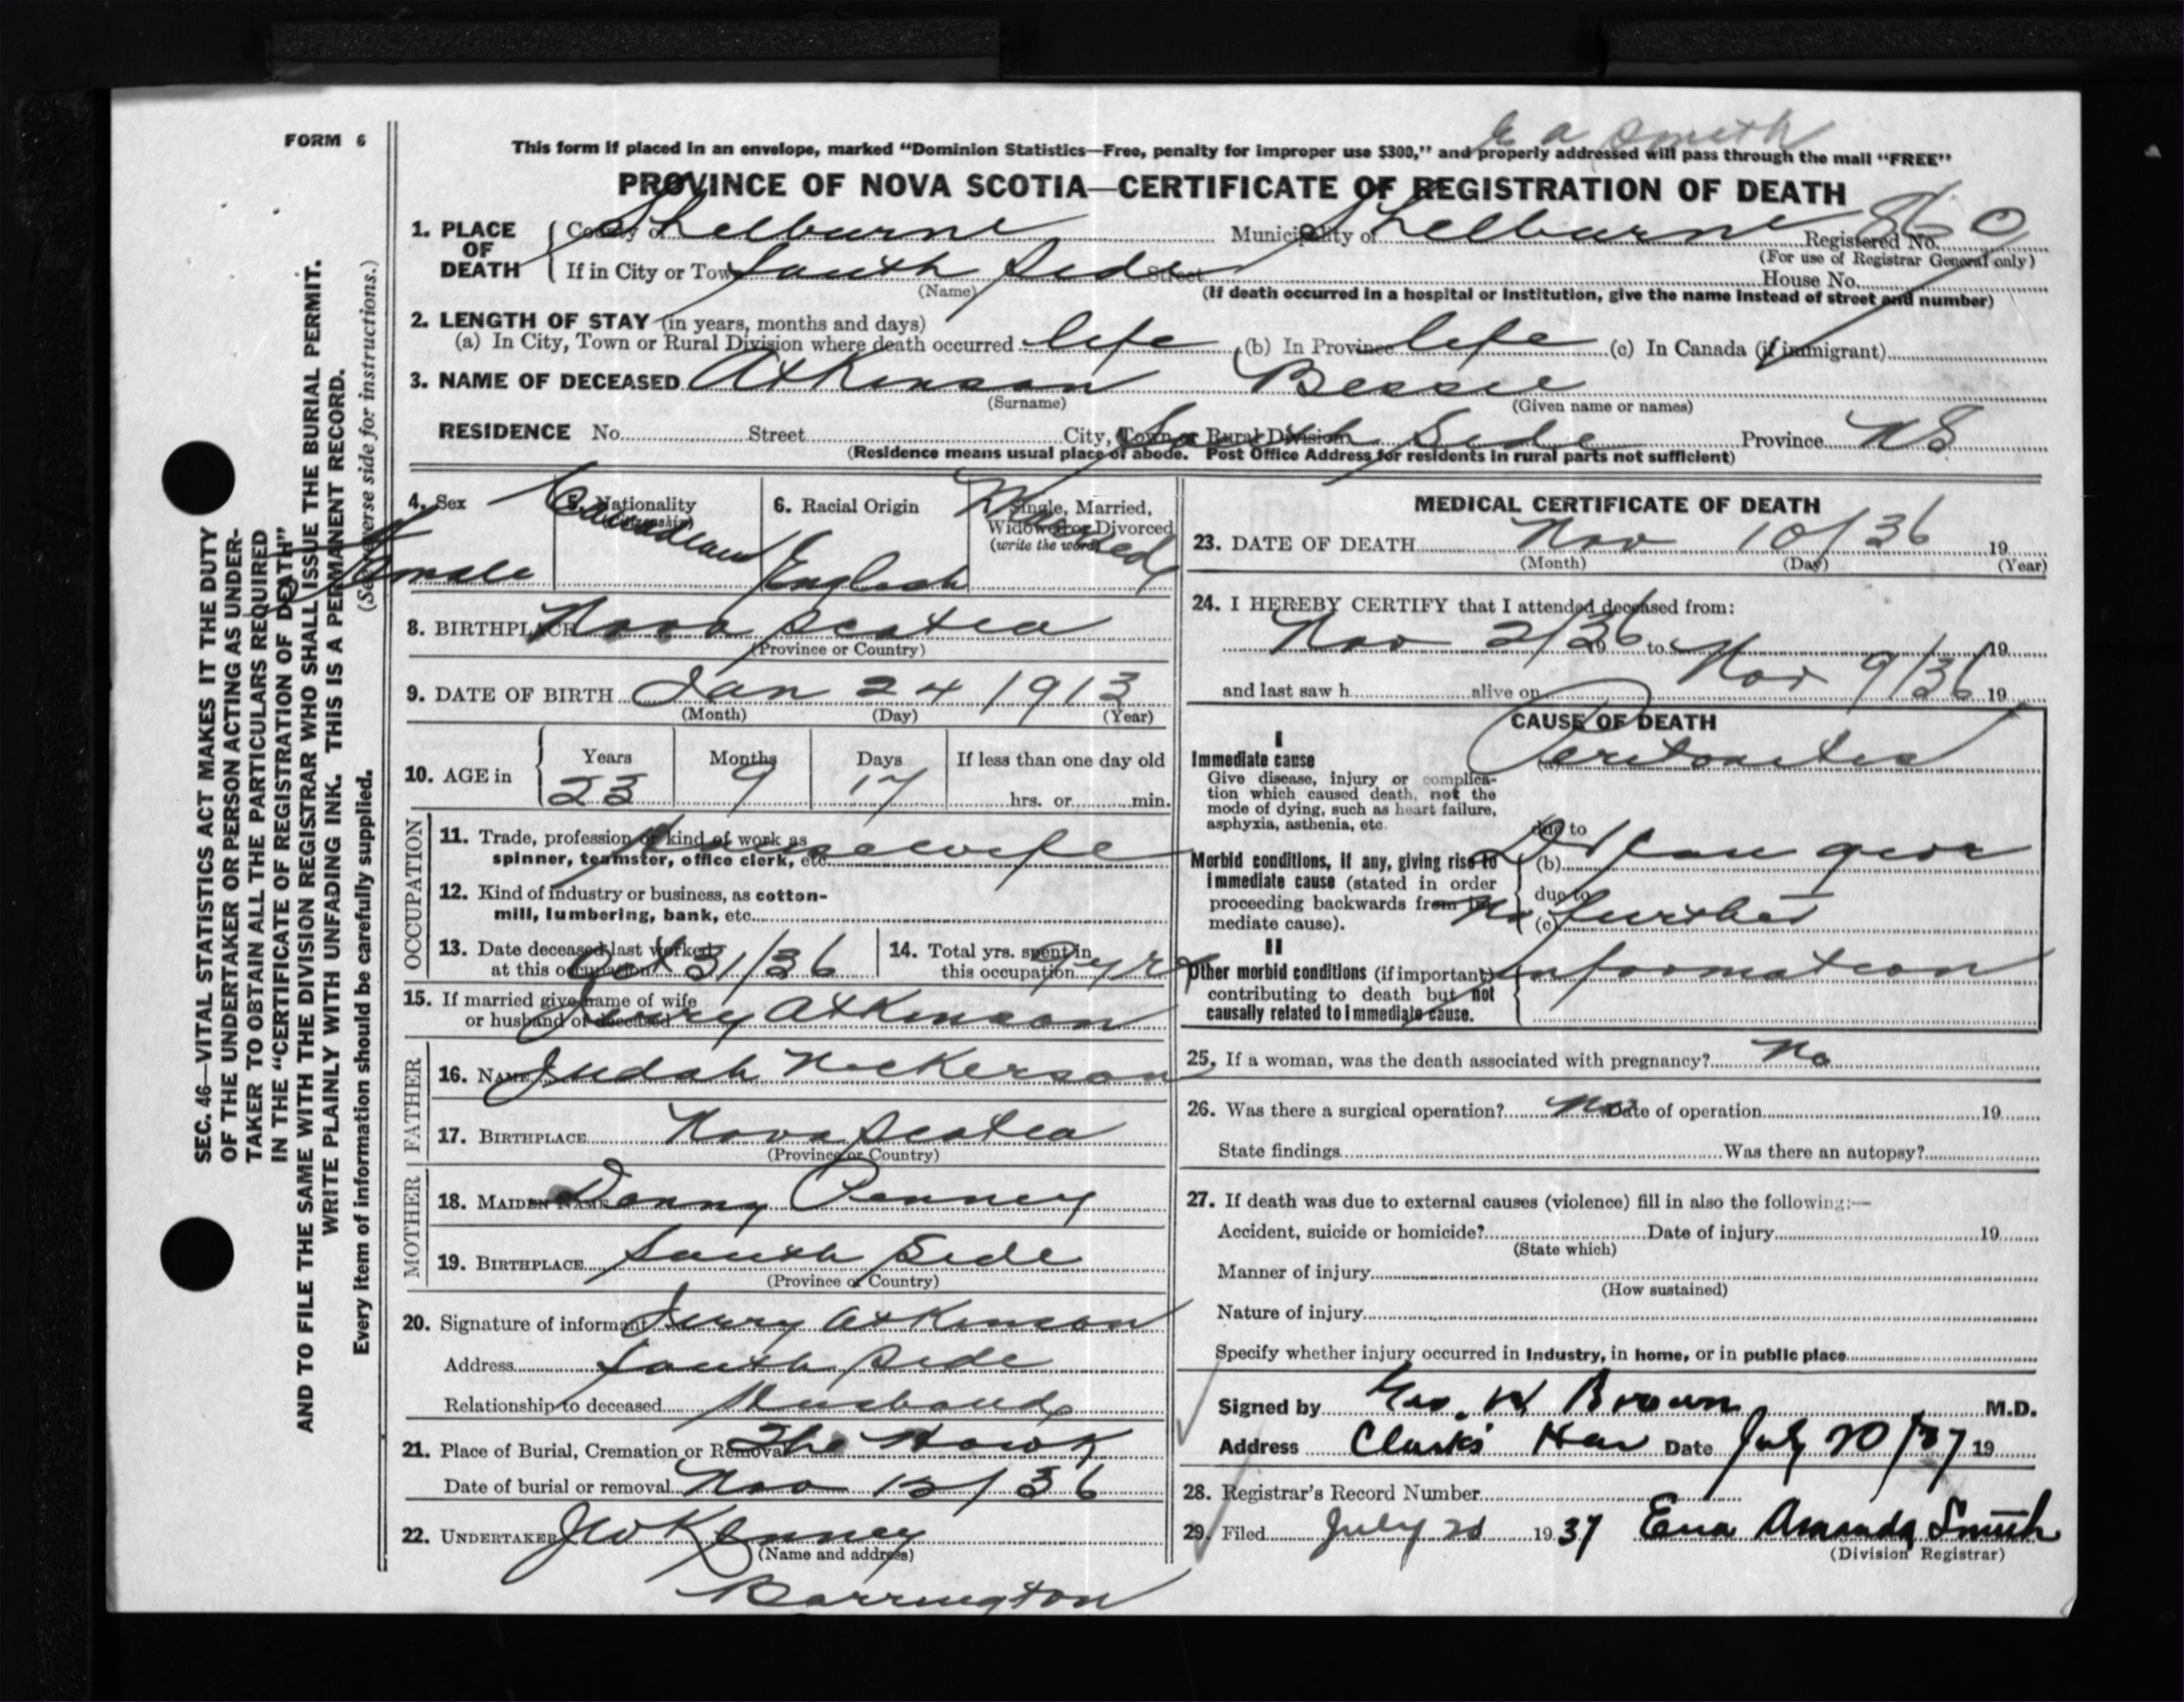 E A Smith
FORM 6
This form if placed in an envelope, marked "Dominion Statistics—Free, penalty for improper use $300," and properly addressed will pass through the mail "FREE"
PROVINCE OF NOVA SCOTIA—CERTIFICATE OF REGISTRATION OF DEATH
1. PLACE OF DEATH County of Shelburne Municipality of Shelburne Registered No.
(For use of Registrar General only)
If in City or Town South Side Street House No.
(Name) (If death occurred in a hospital or institution, give the name instead of street and number)
2. LENGTH OF STAY (in years, months and days)
(a) In City, Town or Rural Division where death occurred life (b) In Province life (c) In Canada (if immigrant)
3. NAME OF DECEASED Atkinson Bessie
(Surname) (Given name or names)
RESIDENCE No. Street City, Town or Rural Division South Side Province N S
(Residence means usual place of abode. Post Office Address for residents in rural parts not sufficient)
4. Sex Female
5. Nationality (Citizenship) Canadian
6. Racial Origin English
Single, Married, Widowed or Divorced (write the word) Married
8. BIRTHPLACE Nova Scotia
(Province or Country)
9. DATE OF BIRTH Jan 24 1913
(Month) (Day) (Year)
10. AGE in Years Months Days If less than one day old
23 9 17 hrs. or min.
OCCUPATION
11. Trade, profession or kind of work as Housewife
spinner, teamster, office clerk, etc.
12. Kind of industry or business, as cotton-
mill, lumbering, bank, etc.
13. Date deceased last worked at this occupation Oct 31/36
14. Total yrs. spent in this occupation yrs
15. If married give name of wife
or husband of deceased Jerry Atkinson
FATHER
16. NAME Judah Nickerson
17. BIRTHPLACE Nova Scotia
(Province or Country)
MOTHER
18. MAIDEN NAME Penney
19. BIRTHPLACE South Side
(Province or Country)
20. Signature of informant Jerry Atkinson
Address South Side
Relationship to deceased Husband
21. Place of Burial, Cremation or Removal The Hawk
Date of burial or removal Nov 12/36
22. UNDERTAKER J W Kenney
(Name and address)
Barrington
MEDICAL CERTIFICATE OF DEATH
23. DATE OF DEATH Nov 10/36 19
(Month) (Day) (Year)
24. I HEREBY CERTIFY that I attended deceased from:
Nov 2/36 19 to Nov 9/36 19
and last saw h alive on 19
CAUSE OF DEATH
I
Immediate cause (a) Peritonitis
Give disease, injury or complica-
tion which caused death, not the
mode of dying, such as heart failure,
asphyxia, asthenia, etc.
due to
Morbid conditions, if any, giving rise to (b) D. can give
immediate cause (stated in order
due to
proceeding backwards from im-
mediate cause). (c) no further
II
Other morbid conditions (if important) information
contributing to death but not
causally related to immediate cause.
25. If a woman, was the death associated with pregnancy? No
26. Was there a surgical operation? No Date of operation 19
State findings Was there an autopsy?
27. If death was due to external causes (violence) fill in also the following:—
Accident, suicide or homicide? Date of injury 19
(State which)
Manner of injury
(How sustained)
Nature of injury
Specify whether injury occurred in industry, in home, or in public place
Signed by Geo. W Brown M.D.
Address Clark's Har Date July 20/37 19
28. Registrar's Record Number
29. Filed July 1937 Amanda Smith
(Division Registrar)
SEC. 46—VITAL STATISTICS ACT MAKES IT THE DUTY
OF THE UNDERTAKER OR PERSON ACTING AS UNDER-
TAKER TO OBTAIN ALL THE PARTICULARS REQUIRED
IN THE "CERTIFICATE OF REGISTRATION OF DEATH"
AND TO FILE THE SAME WITH THE DIVISION REGISTRAR WHO SHALL ISSUE THE BURIAL PERMIT.
WRITE PLAINLY WITH UNFADING INK. THIS IS A PERMANENT RECORD.
Every item of information should be carefully supplied. (See reverse side for instructions.)